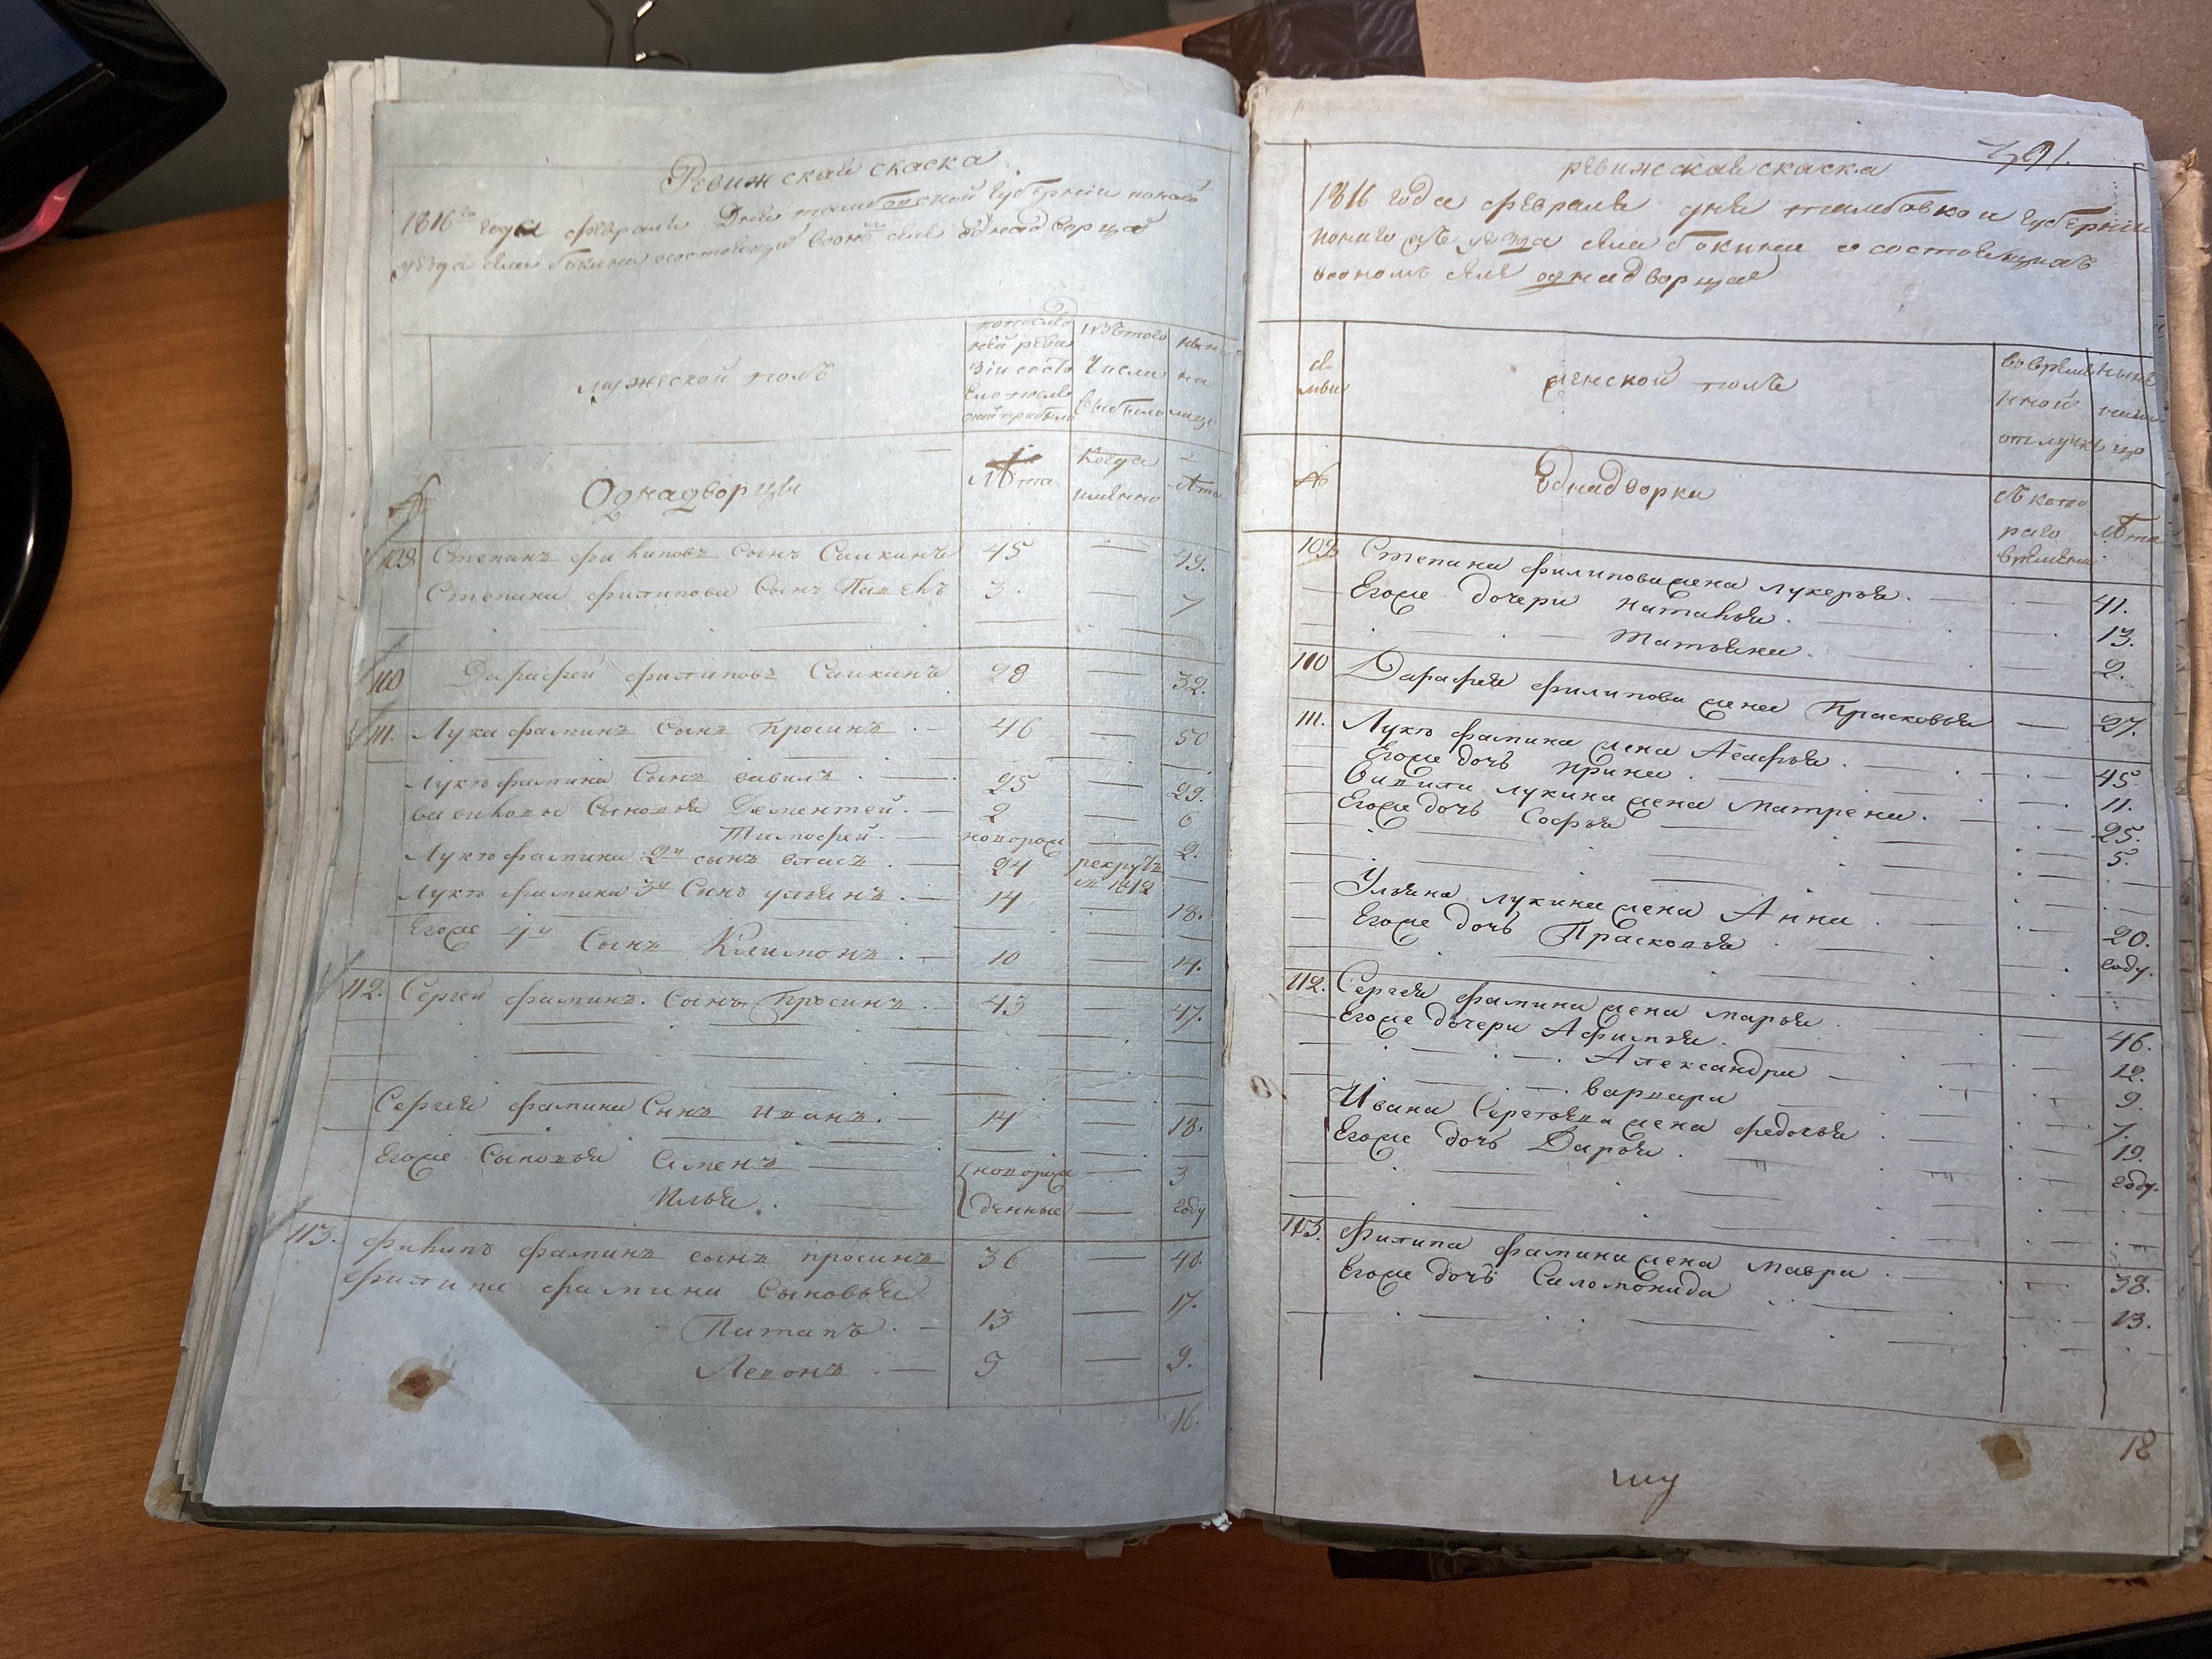 Ревижская скаска
1816го года февраля дня тамбовской губернии
уезда села бокина о состоящих во оном селе однадворцах
мужеской полъ
по последней ревизіи состояло и после оной прибыло
изъ того числа выбыло
ныне на лицо
№
Однадворцы
Лѣта
Когда имянно
Лѣта
109 Степанъ филиповъ сынъ Саикинъ 45 — 49.
Степана филипова сынъ Павелъ 3. — 7
110 Дарафей филиповъ Саикинъ 28 — 32.
111. Лука фаминъ Сынъ просинъ 46 — 50
Луки фамина Сынъ вавилъ 25 — 29.
вавилы Сыновья Дементей. 2 — 6
Тимофей. новорож — 2.
Луки фамина 2й сынъ власъ 24 рекрутъ въ 1812 —
Луки фамина 3й Сынъ ульянъ. 14 — 18.
Егоже 4й Сынъ Климонъ. 10 — 14.
112. Сергей фаминъ. Сынъ просинъ 43 — 47.
Сергея фамина Сынъ иванъ. 14 — 18.
Егоже Сыновья Семенъ новорож — 3
Илья. денные — году
113. филипъ фаминъ сынъ просинъ 36 — 40.
филипа фамина Сыновья
Патапъ. 13 — 17.
Леонъ. 5 — 9.
16.
391.
ревижская скаска
1816 года февраля дня тамбовкои губерніи
уезда села бокина о состоящихъ
во ономъ селе однадворцах
семьи
женской полъ
во временной отлучке
ныне на лицо
№
Еднадворки
съ которого времени
Лѣта
109 Степана филипова жена лукерья. — 41.
Егоже дочери наталья. 13.
татьяна. 2.
110 Дарафея филипова жена Прасковья — 27.
111. Луки фамина жена Агафья. 45.
Егоже дочь ирина. 11.
Вавилы лукина жена матрена. 25.
Егоже дочь Софья 5.
Ульяна лукина жена Анна 20.
Егоже дочь Прасковья году.
112. Сергея фамина жена марья 46.
Егоже дочери Афимья. 12.
Александра 9.
варвара 7.
Ивана Сергеева жена федосья 19.
Егоже дочь Дарья. году.
113. филипа фамина жена мавра. 38.
Егоже дочь Саломонида 13.
18